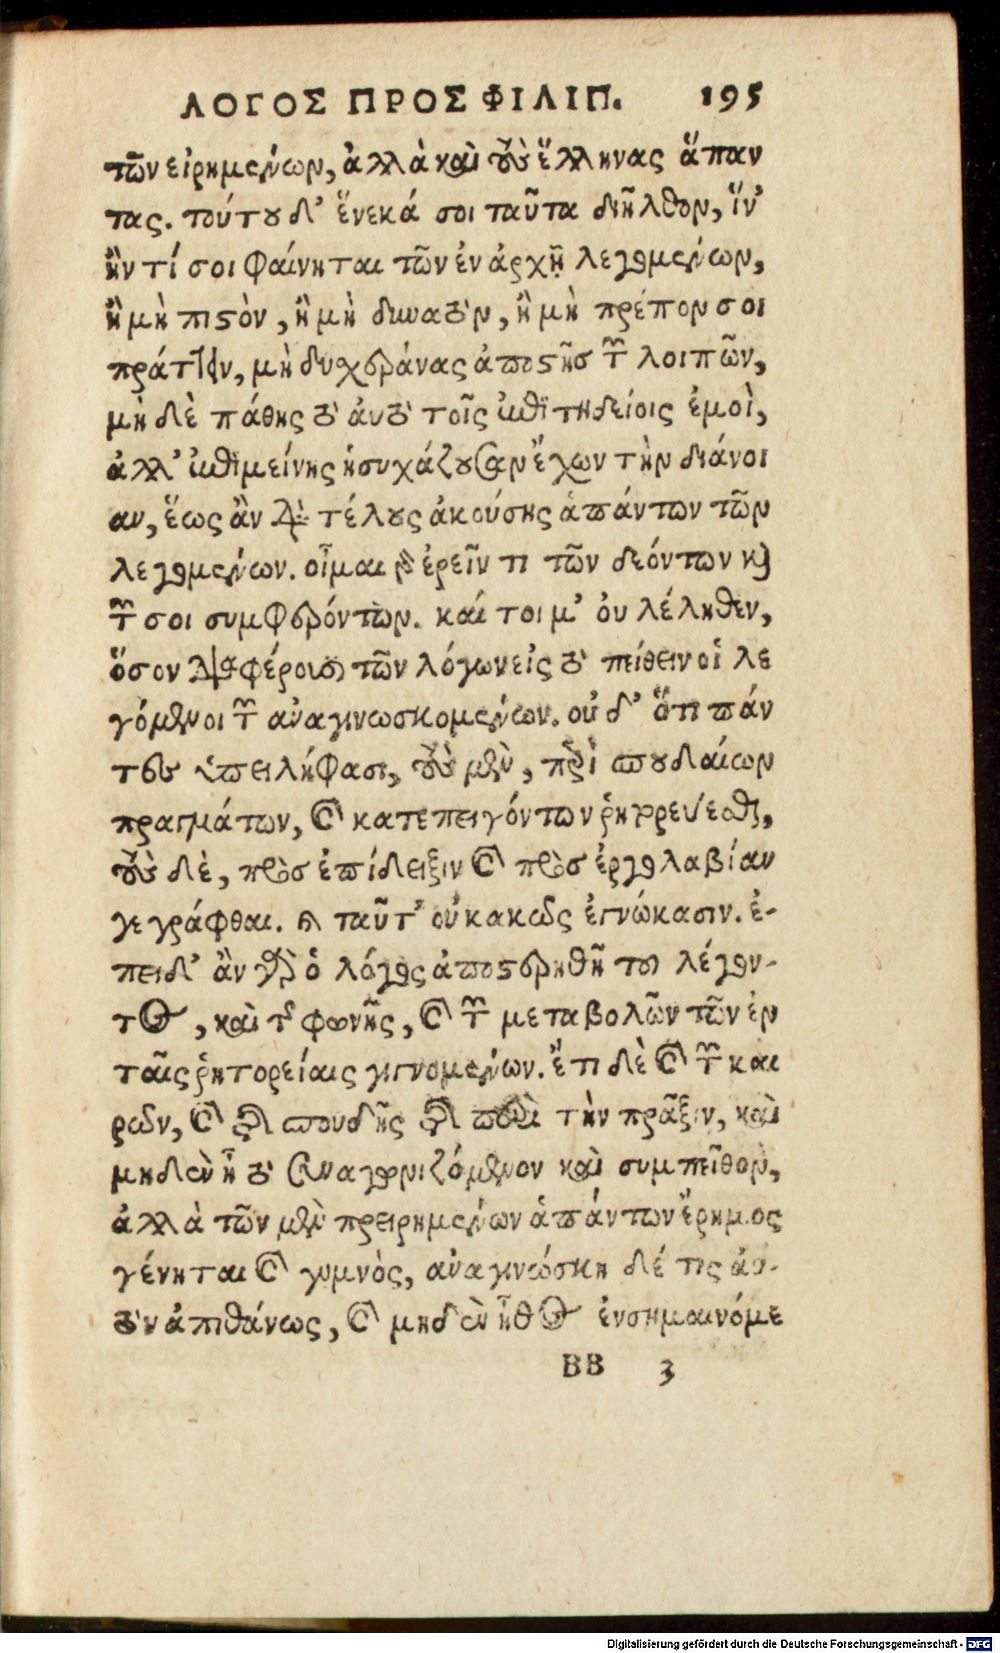 ΛΟΓΟΣ ΠΡΟΣ ΦΙΛΙΠ. 195
τῶν εἰρημένων, ἀλλὰ καὶ τοὺς ἕλληνας ἅπαν
τας. τούτου δ' ἕνεκά σοι ταῦτα διῆλθον, ἵν'
ἤν τί σοι φαίνηται τῶν ἐν ἀρχῇ λεγομένων,
ἢ μὴ πιστὸν, ἢ μὴ δυνατὸν, ἢ μὴ πρέπον σοι
πράττειν, μὴ δυχεράνας ἀποστῇς τῶν λοιπῶν,
μὴ δὲ πάθῃς τὸ ἀυτὸ τοῖς ἐπιτηδείοις ἐμοὶ,
ἀλλ' ἐπιμείνῃς ἡσυχάζουσαν ἔχων τὴν διάνοι
αν, ἕως ἂν διὰ τέλους ἀκούσῃς ἁπάντων τῶν
λεγομένων. οἶμαι γὰρ ἐρεῖν τι τῶν δεόντων καὶ
τῶν σοι συμφερόντων. καί τοι μ' ὀυ λέληθεν,
ὅσον διαφέρουσι τῶν λόγων εἰς τὸ πείθειν οἱ λε
γόμενοι τῶν ἀναγινωσκομένων. οὐδ' ὅτι πάν
τες ὑπειλήφασι, τοὺς μὲν, περὶ σπουδαίων
πραγμάτων, καὶ κατεπειγόντων ῥητορεύεσθαι,
τοὺς δὲ, πρὸς ἐπίδειξιν καὶ πρὸς ἐργολαβίαν
γεγράφθαι. καὶ ταῦτ' οὐ κακῶς ἐγνώκασιν. ἐ-
πειδ' ἂν γὰρ ὁ λόγος ἀποστερηθῇ τοῦ λέγον-
τος, καὶ τῆς φωνῆς, καὶ τῶν μεταβολῶν τῶν ἐν
ταῖς ῥητορείαις γιγνομένων. ἔτι δὲ καὶ τῶν και
ρῶν, καὶ τῆς σπουδῆς τῆς περὶ τὴν πρᾶξιν, καὶ
μηδὲν ᾖ τὸ συναγωνιζόμενον καὶ συμπεῖθον,
ἀλλὰ τῶν μὲν προειρημένων ἁπάντων ἔρημος
γένηται καὶ γυμνὸς, ἀναγινώσκῃ δέ τις ἀυ-
τὸν ἀπιθάνως, καὶ μηδὲν ἦθος ἐνσημαινόμε
BB 3
Digitalisierung gefördert durch die Deutsche Forschungsgemeinschaft - DFG